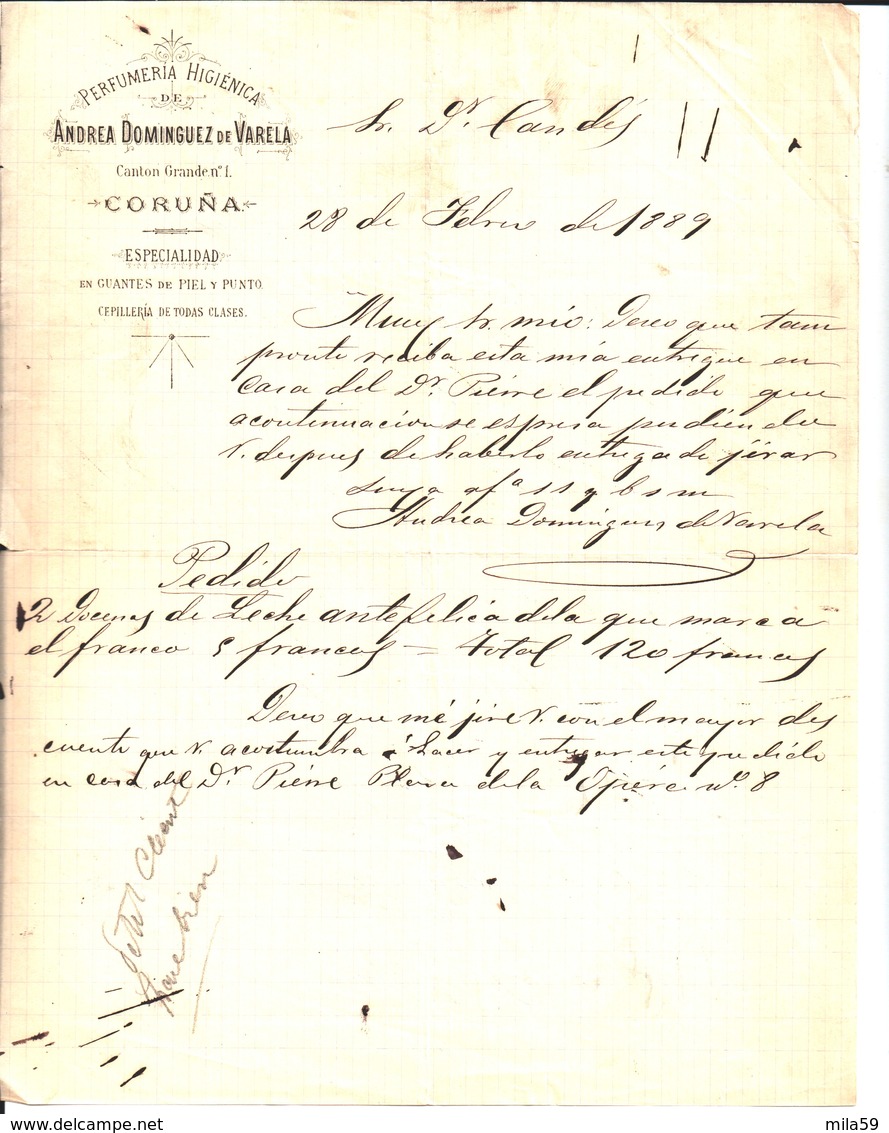 PERFUMERÍA HIGIÉNICA
DE
ANDREA DOMINGUEZ DE VARELA
Canton Grande nº 1.
CORUÑA
ESPECIALIDAD
EN GUANTES DE PIEL Y PUNTO.
CEPILLERÍA DE TODAS CLASES.
Sr. Dr. Candés
28 de Febrero de 1889
Muy Sr. mio: Deseo que tam
pronto reciba esta mia entregue en
Casa del Dr. Pierre el pedido que
acontinuación se espresa pudiendo
V. despues de haberlo entregado jirar
suya afª s s q b s m
Andrea Dominguez de Varela
Pedido
2 Docenas de Leche antefelica dela que marca
el franco 5 francos = Total 120 francos
Deseo que me jire V. con el mayor des
cuento que V. acostumbra á hacer y entregar este pedido
en casa del Dr. Pierre Plaza dela Opéra nº. 8
Petit Client
paie bien
delcampe.net
mila59